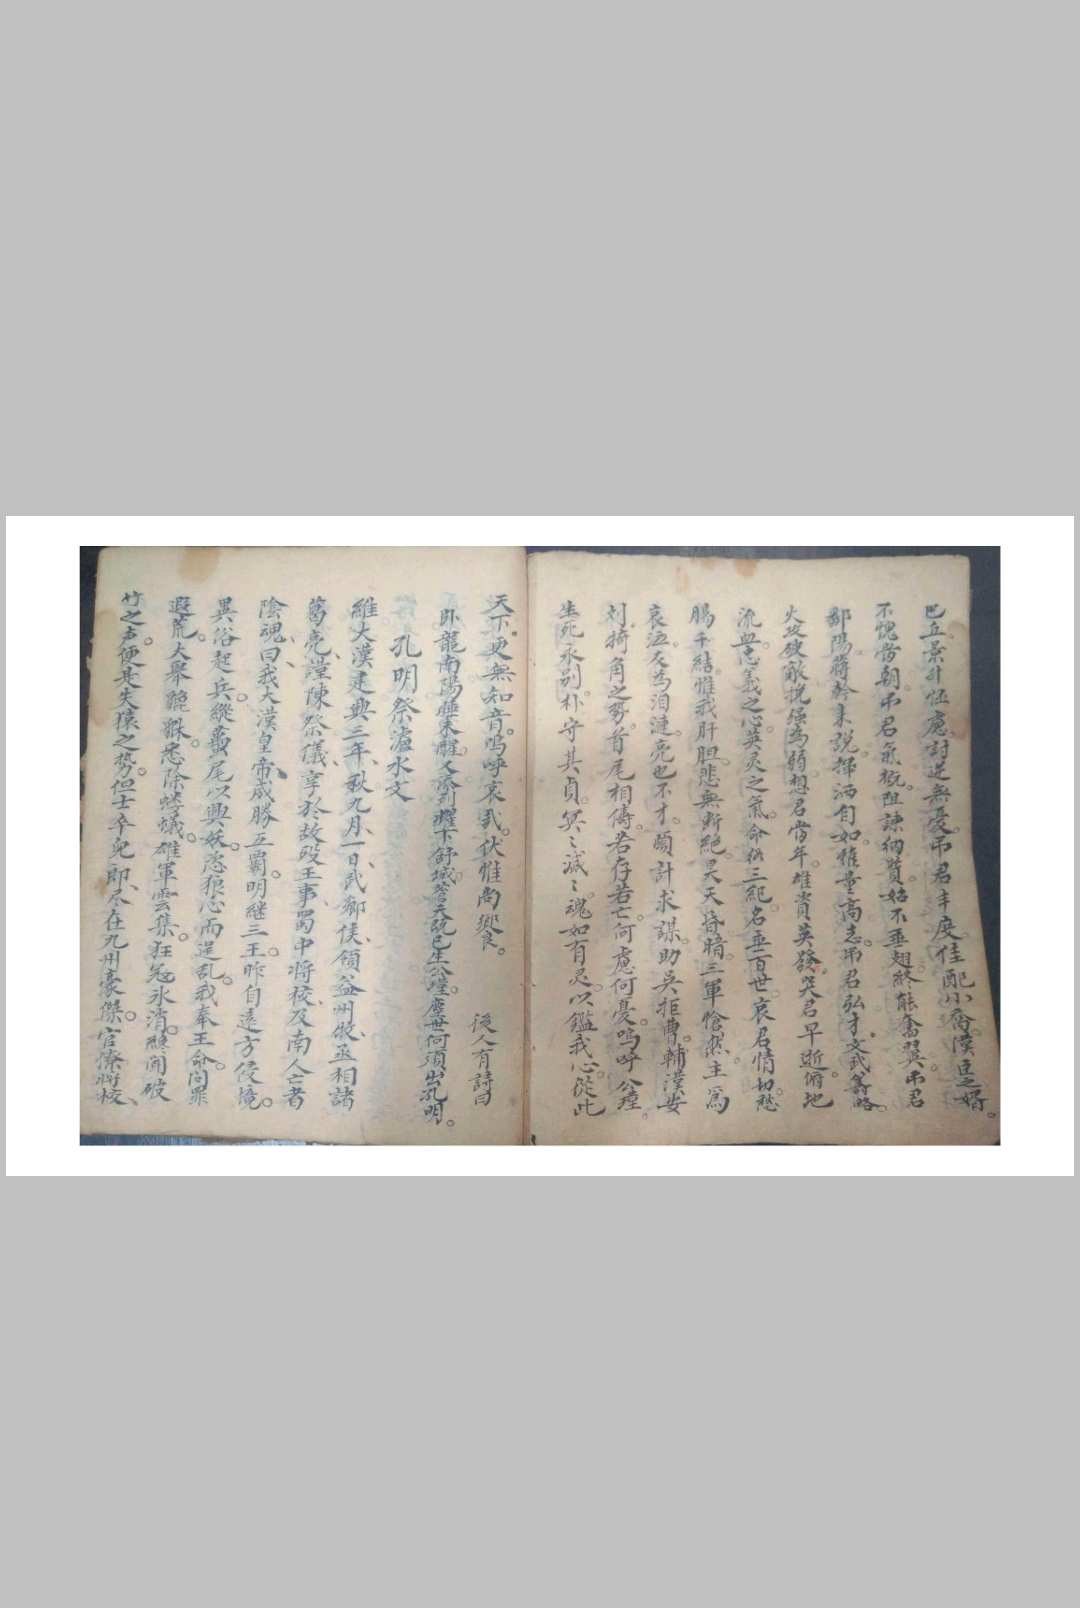 巴丘景升恇慮討逆無憂吊君丰度佳配小喬漢臣之婿
不愧當朝吊君氣概阻諫納質始不垂翅終能奮翼吊君
鄱陽蔣幹來說揮洒自如雅量高志吊君弘才文武籌略
火攻破敵挽强為弱想君當年雄資英發哭君早逝俯地
流血忠義之心英灵之氣命終三紀名垂百世哀君情切愁
腸千結惟我肝胆悲無断絶昊天昏暗三軍愴然主為
哀泣友為泪漣亮也不才丐計求謀助吳拒曹輔漢安
刘掎角之势首尾相儔若存若亡何慮何憂嗚呼公瑾
生死永別朴守其貞冥〻滅〻魂如有灵以鑑我心從此
天下更無知音嗚呼哀哉伏惟尚饗
後人有詩曰
卧龍南陽睡未醒又添列耀下舒城蒼天既已生公瑾塵世何須出孔明
孔明祭瀘水文
維大漢建興三年秋九月一日武鄉侯領益州牧丞相諸
葛亮謹陳祭儀享於故殁王事蜀中將校及南人亡者
陰魂曰我大漢皇帝威勝五霸明繼三王昨自遠方侵境
異俗起兵縱蠆尾以興妖恣狼心而逞乱我奉王命问罪
遐荒大舉貔貅悉除螻蟻雄軍雲集狂冦氷消纔闻破
竹之声便是失猿之势但士卒兒郎尽在九州豪傑官僚將校